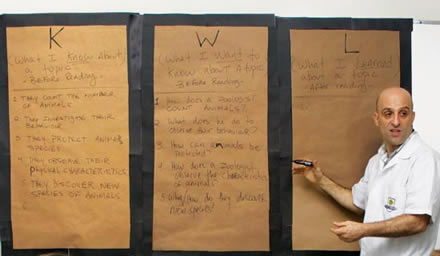 K
(What I Know About
a topic
- Before Reading -
1 They count the number
of animals
2 They investigate their
behaviour
3 They protect animal
species
4 They observe their
physical characteristics
5 They discover new
species of animals
W
(What I Want to
Know about a topic
- Before Reading -
1 How does a zoologist
count animals?
2. What does he do to
observe their behaviour?
3. How can animals be
protected?
4 How does a zoologist
observe the characteristics
of animals
5 Why/How do they discover
new species
L
(What I Learned
about a topic
- After reading -